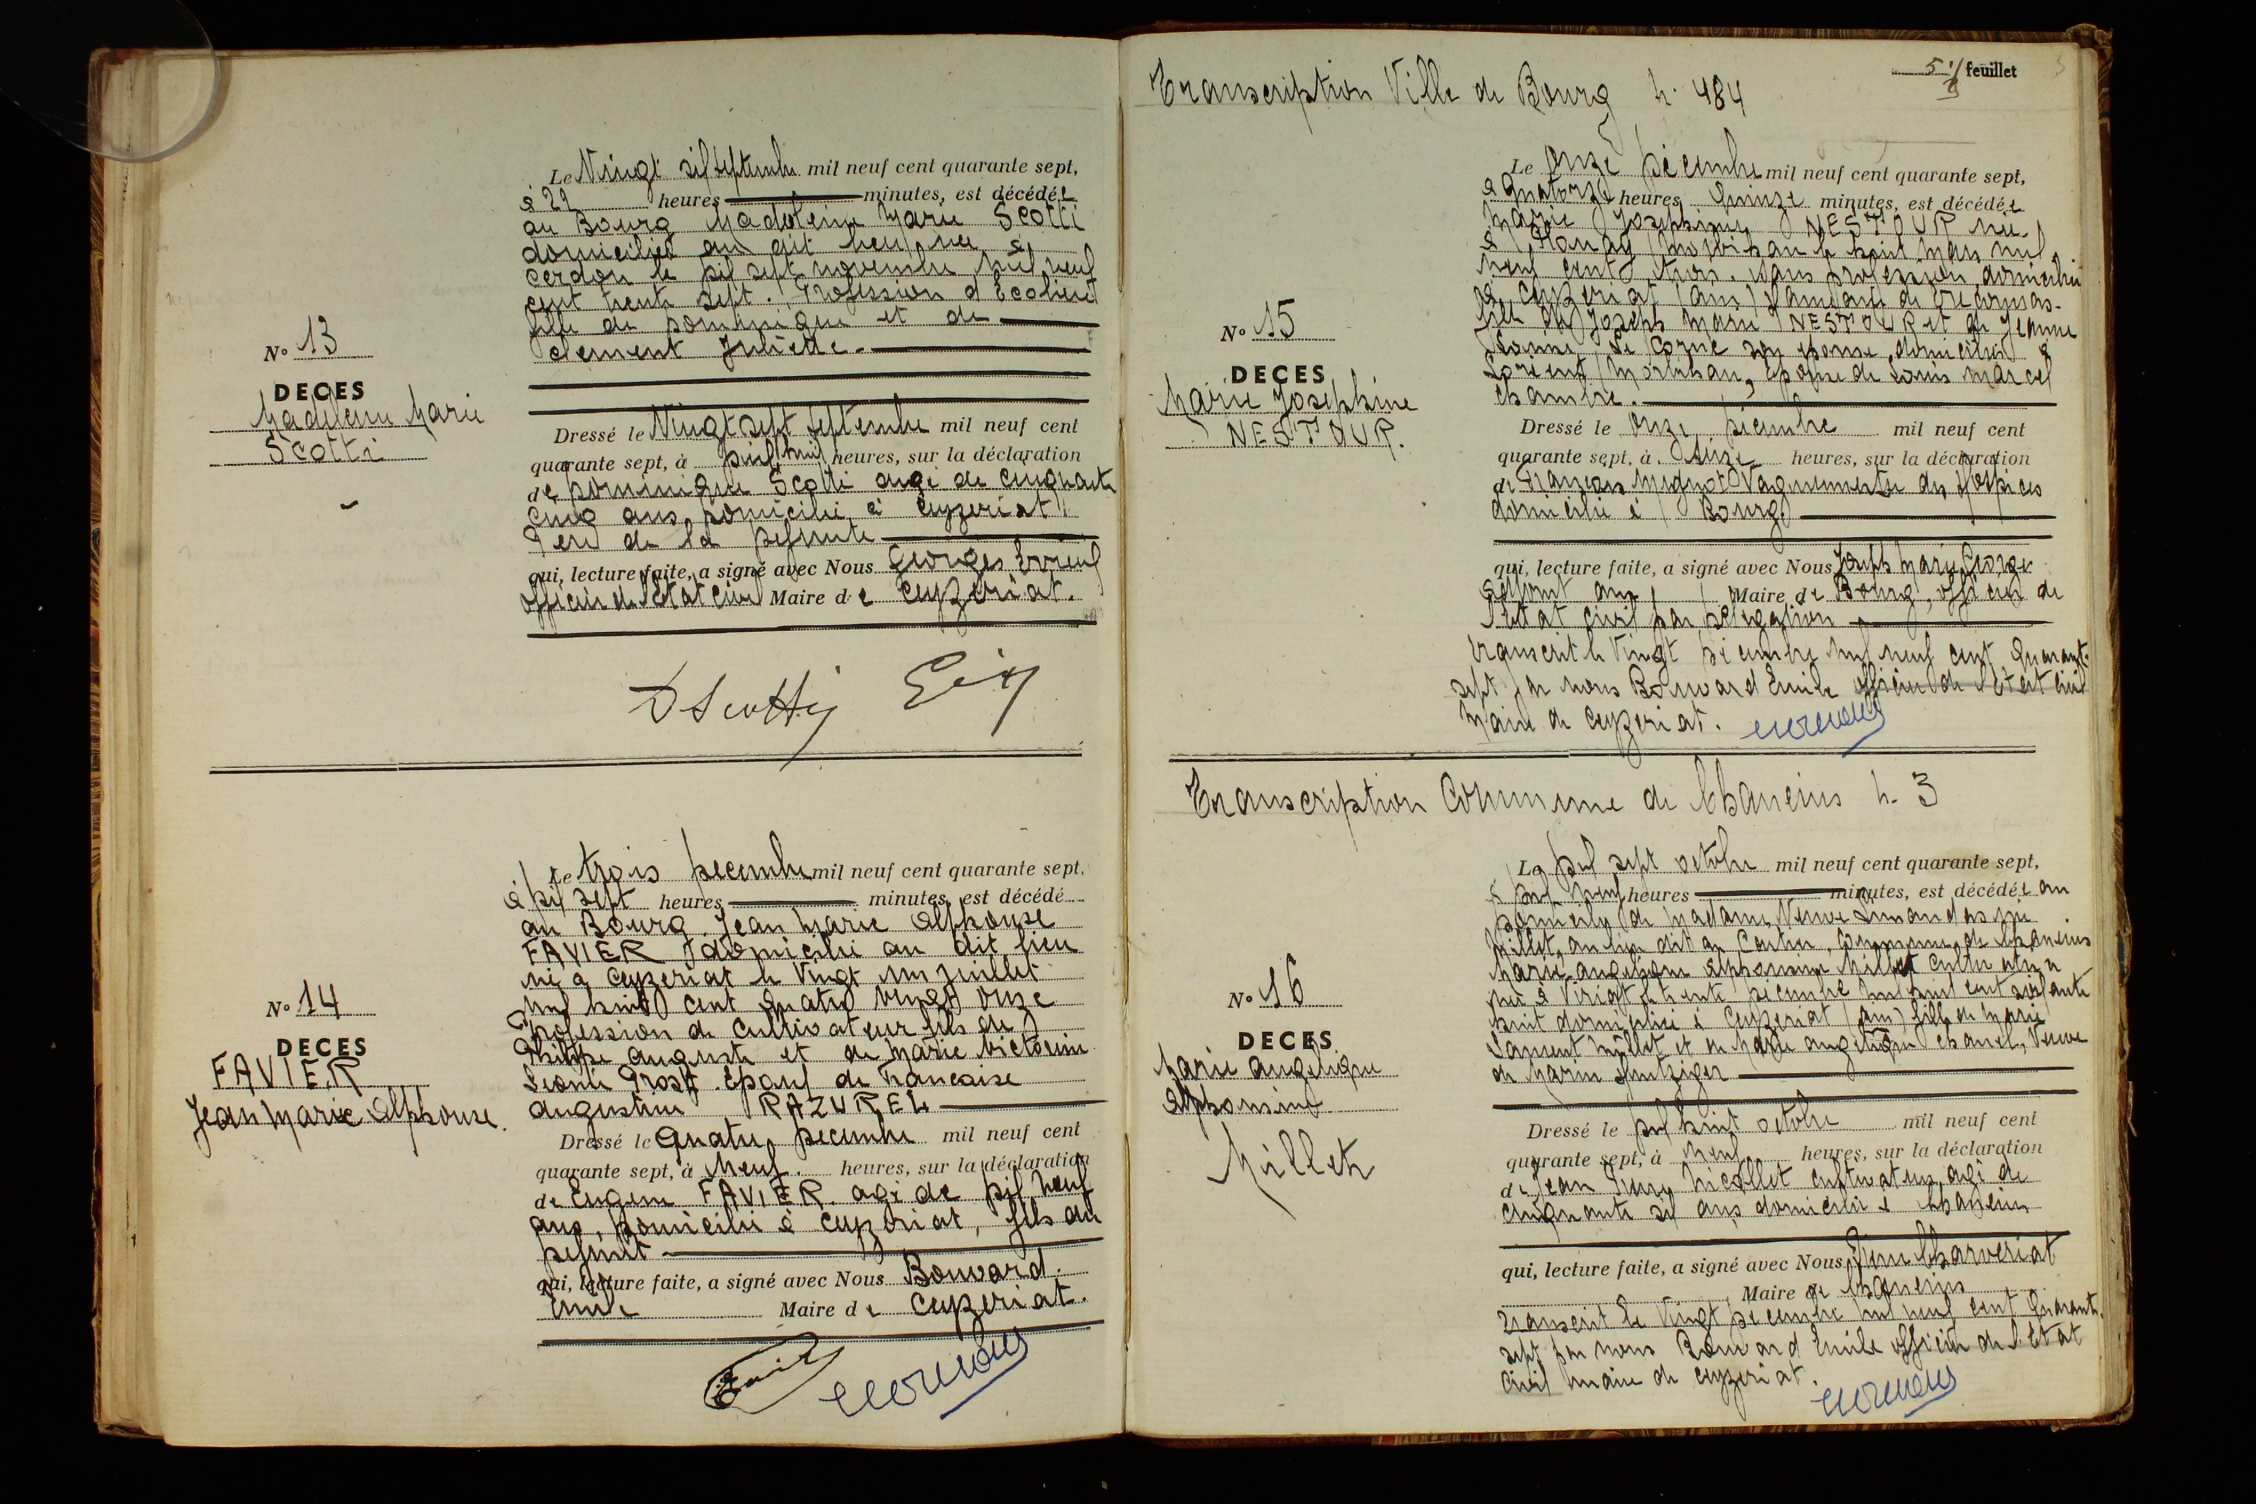 Le Vingt six Septembre mil neuf cent quarante sept,
à 22 heures minutes, est décédée
au Bourg Madeleine Marie Scotti
domiciliée au dit lieu, née à
Cerdon le dix sept novembre mil neuf
cent trente sept. Profession d'Ecolière
fille de Dominique et de
Clement Juliette.
No 13
DECES
Madeleine Marie
Scotti
Dressé le Vingt sept Septembre mil neuf cent
quarante sept, à dix huit heures, sur la déclaration
de Dominique Scotti agé de cinquante
cinq ans, domicilié à Ceyzeriat
Père de la defunte
qui, lecture faite, a signé avec Nous Georges
officier de l'Etat civil Maire de Ceyzeriat.
D Scotti
Le trois Decembre mil neuf cent quarante sept,
à dix sept heures minutes, est décédé
au Bourg. Jean Marie Alphonse
FAVIER domicilié au dit lieu
né à Ceyzeriat le Vingt un juillet
mil huit cent quatre vingt onze
Profession de Cultivateur fils de
Philippe Auguste et de Marie Victorine
Leonie Prost. Epoux de Francaise
Augustine RAZUREL
No 14
DECES
FAVIER
Jean Marie Alphonse.
Dressé le Quatre Decembre mil neuf cent
quarante sept, à Neuf. heures, sur la déclaration
de Eugene FAVIER agé de dix neuf
ans, domicilié à Ceyzeriat, fils du
defunt
qui, lecture faite, a signé avec Nous Bouvard.
Emile Maire de Ceyzeriat.
5 feuillet
Transcription Ville de Bourg N. 484
Le Onze Décembre mil neuf cent quarante sept,
à Quatorze heures Quinze minutes, est décédée
Marie Josephine NESTOUR née
à Morbihan le huit Mars mil
neuf cent trois. sans profession, domiciliée
à Ceyzeriat (Ain)
fille de Joseph Marie NESTOUR et de Jeanne
Le Corne son epouse, domiciliés à
Lorient, Morbihan, epouse de Louis Marcel
No 15
DECES
Marie Josephine
NESTOUR.
Dressé le Onze Décembre mil neuf cent
quarante sept, à heures, sur la déclaration
de François Mignot Vaguemestre des Hospices
domicilié à Bourg
qui, lecture faite, a signé avec Nous Joseph Marie George
Maire de Bourg, officier de
l'Etat civil par délégation
Transcrit le Vingt Décembre mil neuf cent Quarante
sept par nous Bouvard Emile officier de l'Etat civil
Maire de Ceyzeriat.
Transcription Commune de Chaneins N. 3
Le dix sept octobre mil neuf cent quarante sept,
à dix neuf heures minutes, est décédée au
domicile de Madame Veuve née
Millet, au lieu dit commune de Chaneins
Marie Angelique Alphonsine Millet cultivatrice
née à Viriat le trente Décembre mil huit cent soixante
huit domiciliée à Ceyzeriat (Ain) fille de Marie
Laurent Millet et de Marie Angelique Chanel, Veuve
de Marin
No 16
DECES
Marie Angelique
Alphonsine
Millet
Dressé le dix huit octobre mil neuf cent
quarante sept, à Neuf heures, sur la déclaration
de Jean Nicollet cultivateur, agé de
cinquante six ans domicilié à Chaneins
qui, lecture faite, a signé avec Nous Charveriat
Maire de Chaneins
Transcrit le Vingt Décembre mil neuf cent Quarante
sept par nous Bouvard Emile officier de l'Etat
civil maire de Ceyzeriat.